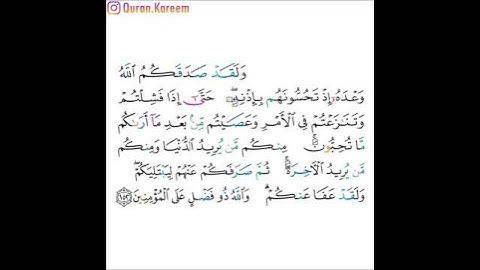 Quran.Kareem
وَلَقَدْ صَدَقَكُمُ اللَّهُ
وَعْدَهُۥ إِذْ تَحُسُّونَهُم بِإِذْنِهِۦ ۖ حَتَّىٰٓ إِذَا فَشِلْتُمْ
وَتَنَٰزَعْتُمْ فِى الْأَمْرِ وَعَصَيْتُم مِّنۢ بَعْدِ مَآ أَرَىٰكُم
مَّا تُحِبُّونَ ۚ مِنكُم مَّن يُرِيدُ الدُّنْيَا وَمِنكُم
مَّن يُرِيدُ الْءَاخِرَةَ ۚ ثُمَّ صَرَفَكُمْ عَنْهُمْ لِيَبْتَلِيَكُمْ ۖ
وَلَقَدْ عَفَا عَنكُمْ ۗ وَاللَّهُ ذُو فَضْلٍ عَلَى الْمُؤْمِنِينَ ١٥٢